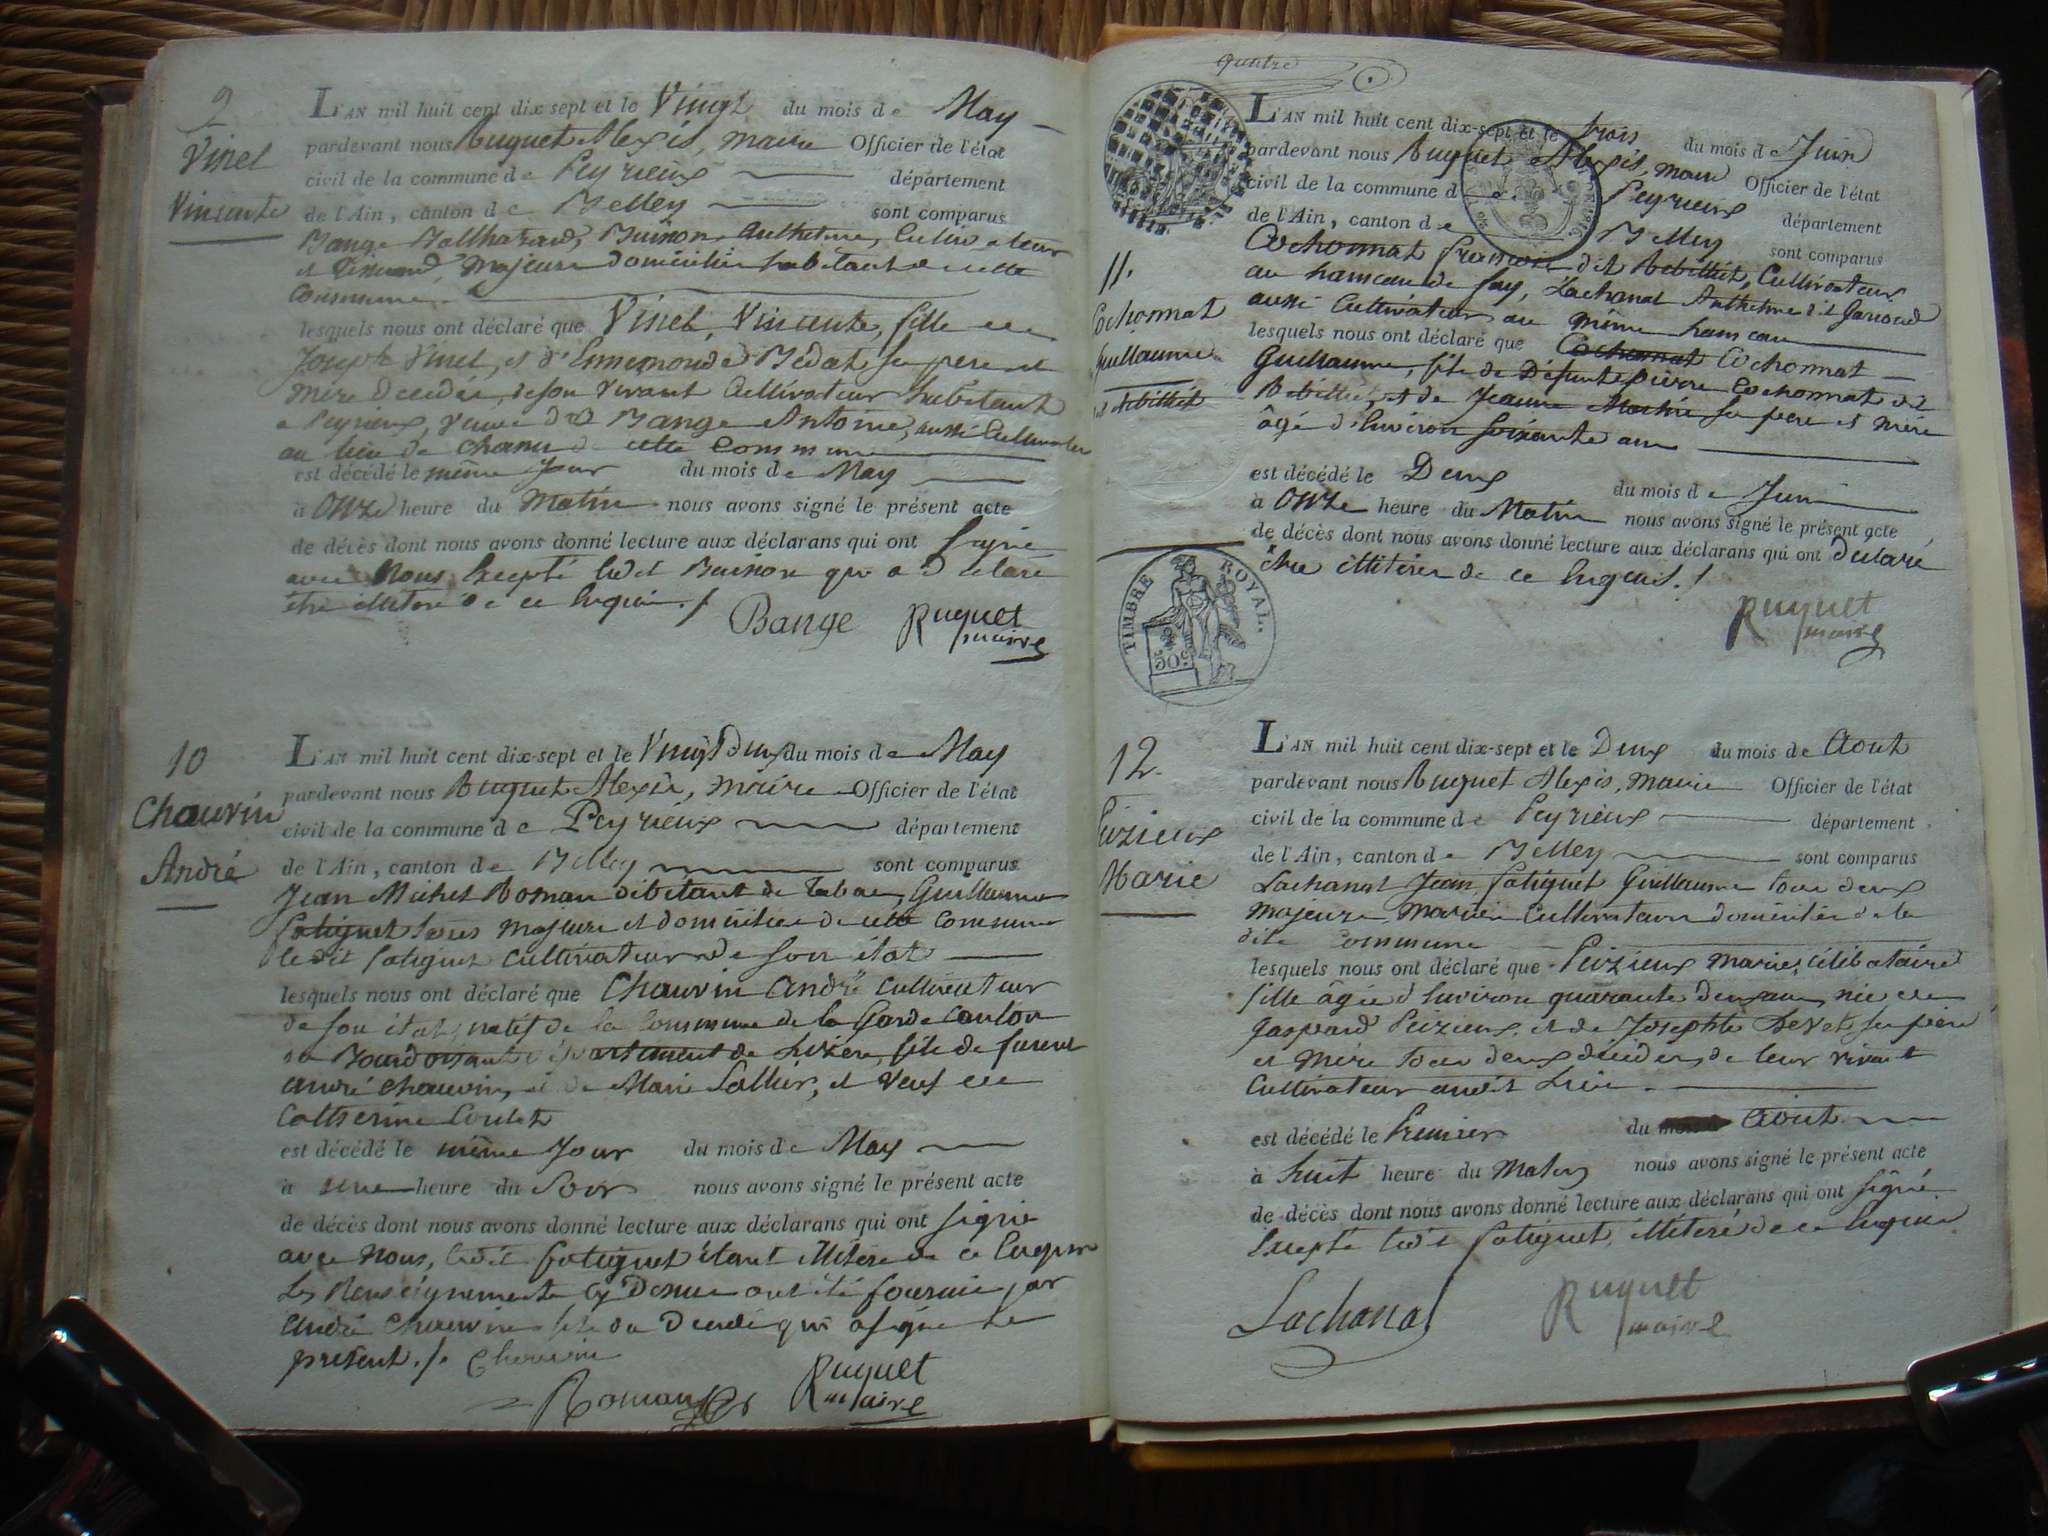 9
Vinet
Vincente
L'AN mil huit cent dix sept et le Vingt du mois de May
pardevant nous Ruquet Alexis, maire Officier de l'état
civil de la commune de Peyrieux département
de l'Ain, canton de Belley sont comparus
Bange Balthazard, Buinon Anthelme, Cultivateur
et majeurs domiciliés habitant de cette
Commune.
lesquels nous ont déclaré que Vinet, Vincente, fille de
Joseph Vinet, et d'Ennemonde Bédat, ses père et
mère décédés, de son vivant Cultivateur habitant
a Peyrieux, veuve de Bange Antoine, aussi Cultivateur
au lieu de de cette Commune
est décédé le même Jour du mois de May
à Onze heure du Matin nous avons signé le présent acte
de décès dont nous avons donné lecture aux déclarans qui ont signé
avec Nous, Excepté ledit Buinon qui a déclaré
être illitéré de ce Enquis./.
Bange Ruquet
maire
10
Chauvin
André
L'AN mil huit cent dix-sept et le Vingt Deux du mois de May
pardevant nous Ruquet Alexis, maire Officier de l'état
civil de la commune de Peyrieux département
de l'Ain, canton de Belley sont comparus
Jean Michel Roman débitant de Tabac, Guillaume
Fatiguet tous majeurs et domiciliés de cette commune
ledit Fatiguet Cultivateur de son état
lesquels nous ont déclaré que Chauvin André Cultivateur
de son état, natif de la Commune de la Garde Canton
du Bourdoisant département de Lizère, fils de
André Chauvin, et de Marie Sallier, et veuf de
Catherine Coulet
est décédé le même Jour du mois de May
à une heure du Soir nous avons signé le présent acte
de décès dont nous avons donné lecture aux déclarans qui ont signé
avec Nous, ledit Fatiguet étant illitéré de ce Enquis
Les Renseignements cy Dessus ont été fournis par
André Chauvin fils du Décédé qui a signé le
présent./. Chauvin
Roman Ruquet
maire
quatre
11.
Cochonnat
Guillaume
dit Rebilliet
L'AN mil huit cent dix-sept et le trois du mois de Juin
pardevant nous Ruquet Alexis, maire Officier de l'état
civil de la commune de Peyrieux département
de l'Ain, canton de Belley sont comparus
Cochonnat François dit Rebilliet, Cultivateur
au hameau de Fay, Lachanal Anthelme dit
aussi Cultivateur au même hameau
lesquels nous ont déclaré que Cochonnat Cochonnat
Guillaume, fils de Défunt pierre Cochonnat dit
Rebilliet, et de Jeanne ses père et mère
âgé d'Environ soixante ans
est décédé le Deux du mois de Juin
à Onze heure du Matin nous avons signé le présent acte
de décès dont nous avons donné lecture aux déclarans qui ont déclaré
être illitérés de ce Enquis./.
Ruquet
maire
TIMBRE ROYAL.
50c
12.
Peizieux
Marie
L'AN mil huit cent dix-sept et le Deux du mois de Aout
pardevant nous Ruquet Alexis, maire Officier de l'état
civil de la commune de Peyrieux département
de l'Ain, canton de Belley sont comparus
Lachanal Jean, Fatiguet Guillaume tous deux
majeurs, Mariés Cultivateurs domiciliés de la
dite Commune
lesquels nous ont déclaré que Peizieux Marie, célibataire
fille âgée d'Environ quarante Deux ans, née de
Gaspard Peizieux, et de Josephte Devet, ses père
et mère tous deux décédés, de leur vivant
Cultivateur audit Lieu.
est décédé le Premier du Aout
à huit heure du Matin nous avons signé le présent acte
de décès dont nous avons donné lecture aux déclarans qui ont signé
Excepté ledit Fatiguet, illitéré de ce Enquis
Lachanal Ruquet
maire